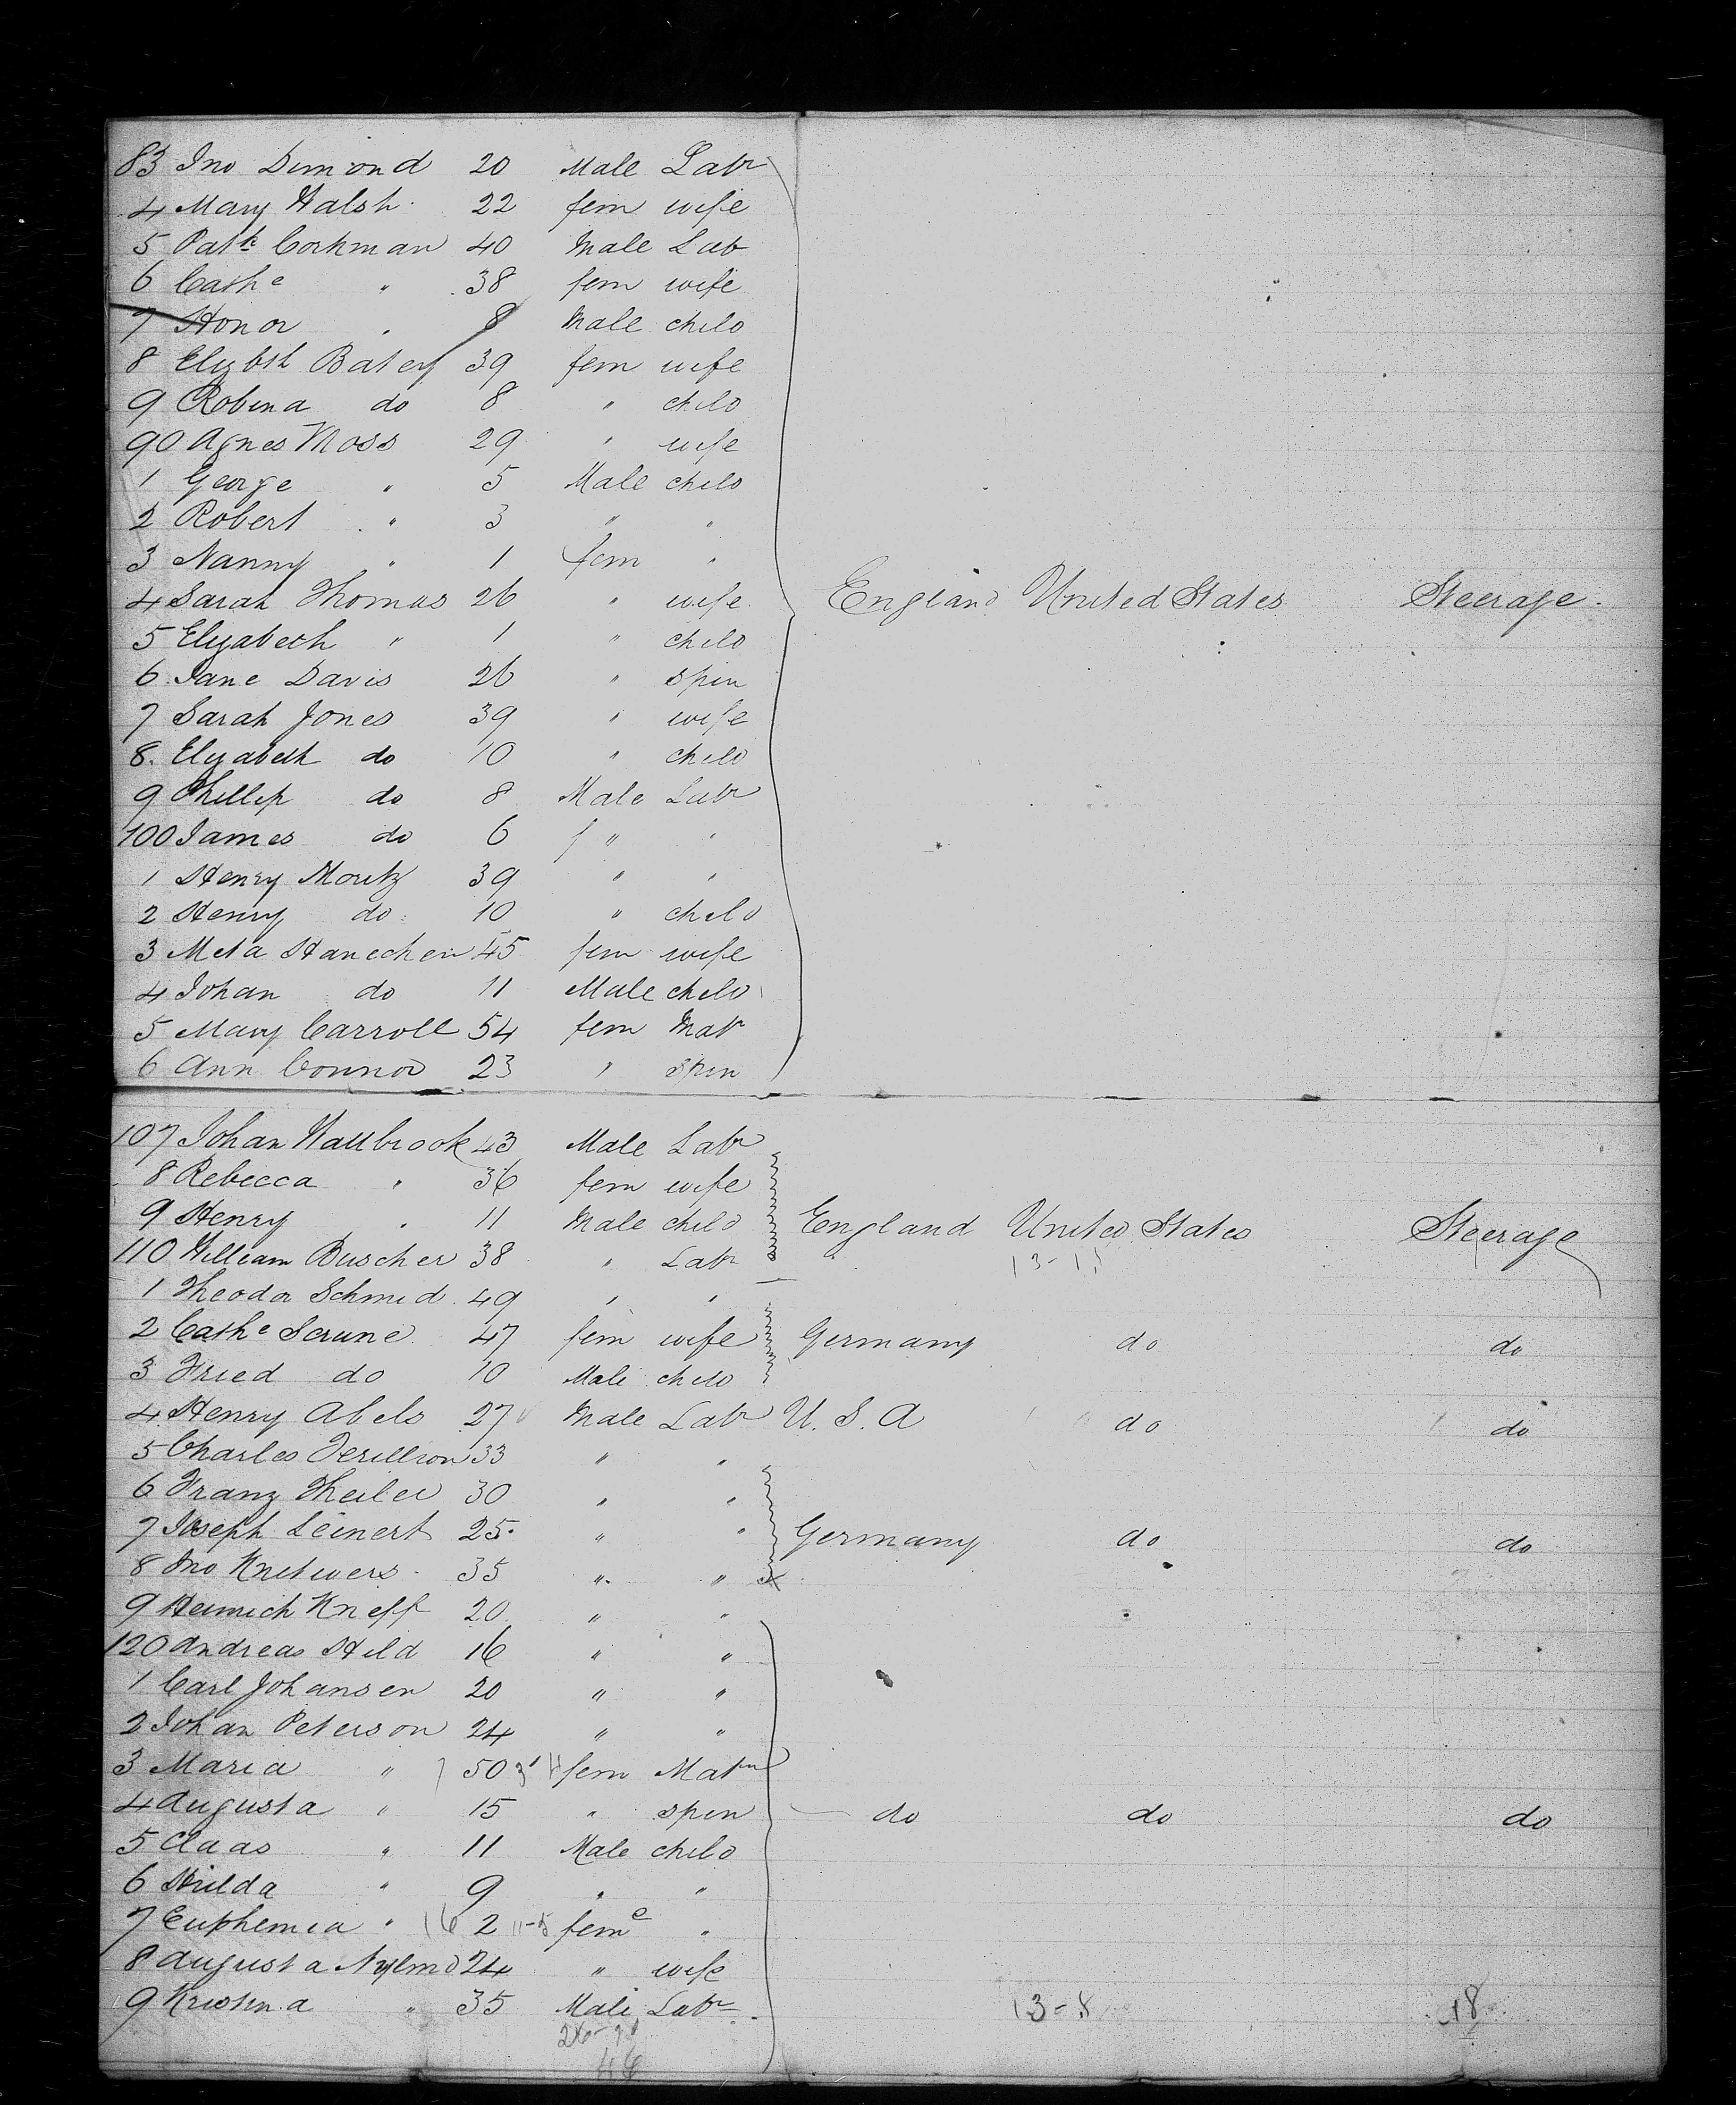 83 Jno Dimond 20 Male Labr
4 Mary Walsh 22 fem wife
5 Patk Corkman 40 Male Lab
6 Cathe " 38 fem wife
7 Honor " 8 Male child
8 Elizbth Batey 39 fem wife
9 Robina do 8 " child
90 Agnes Moss 29 " wife
1 George " 5 Male child
2 Robert " 3 " "
3 Nanny " 1 fem "
4 Sarah Thomas 26 " wife England United States Steerage
5 Elizabeth " 1 " child
6 Jane Davis 26 " spin
7 Sarah Jones 39 " wife
8 Elizabeth do 10 " child
9 Phillip do 8 Male Labr
100 James do 6 " "
1 Henry Moritz 39 " "
2 Henry do 10 " child
3 Meta Hanechen 45 fem wife
4 Johan do 11 Male child
5 Mary Carroll 54 fem Matr
6 Ann Connor 23 " spin
107 Johan Wallbrook 43 Male Labr
8 Rebecca " 36 fem wife
9 Henry " 11 Male child England United States Steerage
110 William Buscher 38 " Labr 13-11
1 Theodor Schmid 49 " "
2 Cathe Serune 47 fem wife Germany do do
3 Fried do 10 Male child
4 Henry Abels 27 Male Labr U.S.A do do
5 Charles 33 " "
6 Franz Theiler 30 " "
7 Joseph Leinert 25 " " Germany do do
8 Jno 35 " "
9 Heinrich Kneff 20 " "
120 Andreas Hild 16 " "
1 Carl Johansen 20 " "
2 Johan Peterson 24 " "
3 Maria " 50 fem Matrn
4 Augusta " 15 " spin do do do
5 Claas " 11 Male child
6 Hilda " 9 " "
7 Euphemia " 2 11-5 feme "
8 Augusta 24 " wife
9 Kristina " 35 Male Labr 13-8 18